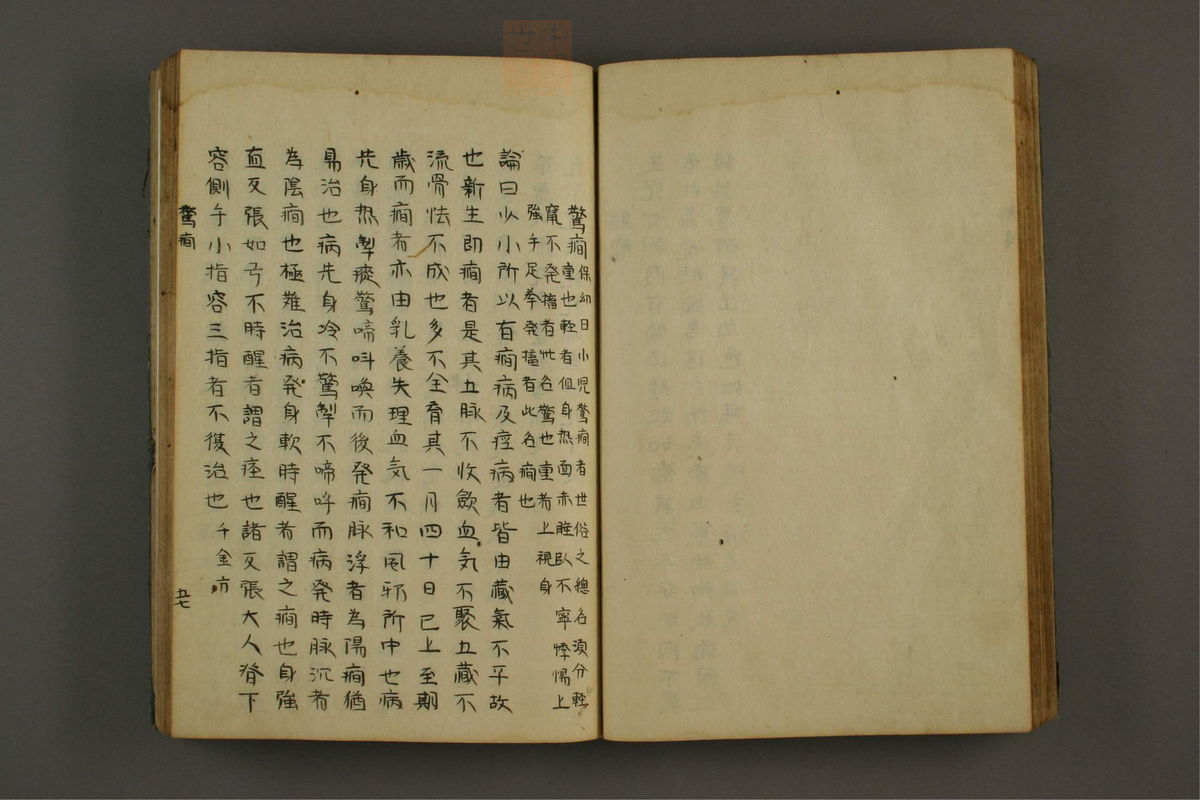 驚癇保幼曰小児驚癇者世俗之總名須分軽
重也軽者但身热面赤睡臥不寧悸惕上
竄不発搐者此名驚也重者上視身
強手足拳発搐者此名癇也
論曰少小所以有癇病及痙病者皆由藏氣不平故
也新生即癇者是其五脉不收歛血気不聚五藏不
流骨怯不成也多不全育其一月四十日已上至期
歳而癇者亦由乳養失理血気不和風邪所中也病
先身热掣瘲驚啼呌喚而後発癇脉浮者為陽癇猶
易治也病先身冷不驚掣不啼呼而病発時脉沉者
為陰癇也極難治病発身軟時醒者謂之癇也身強
直反張如弓不時醒者謂之痓也諸反張大人脊下
容側手小指容三指者不復治也 千金方
驚癇
五七